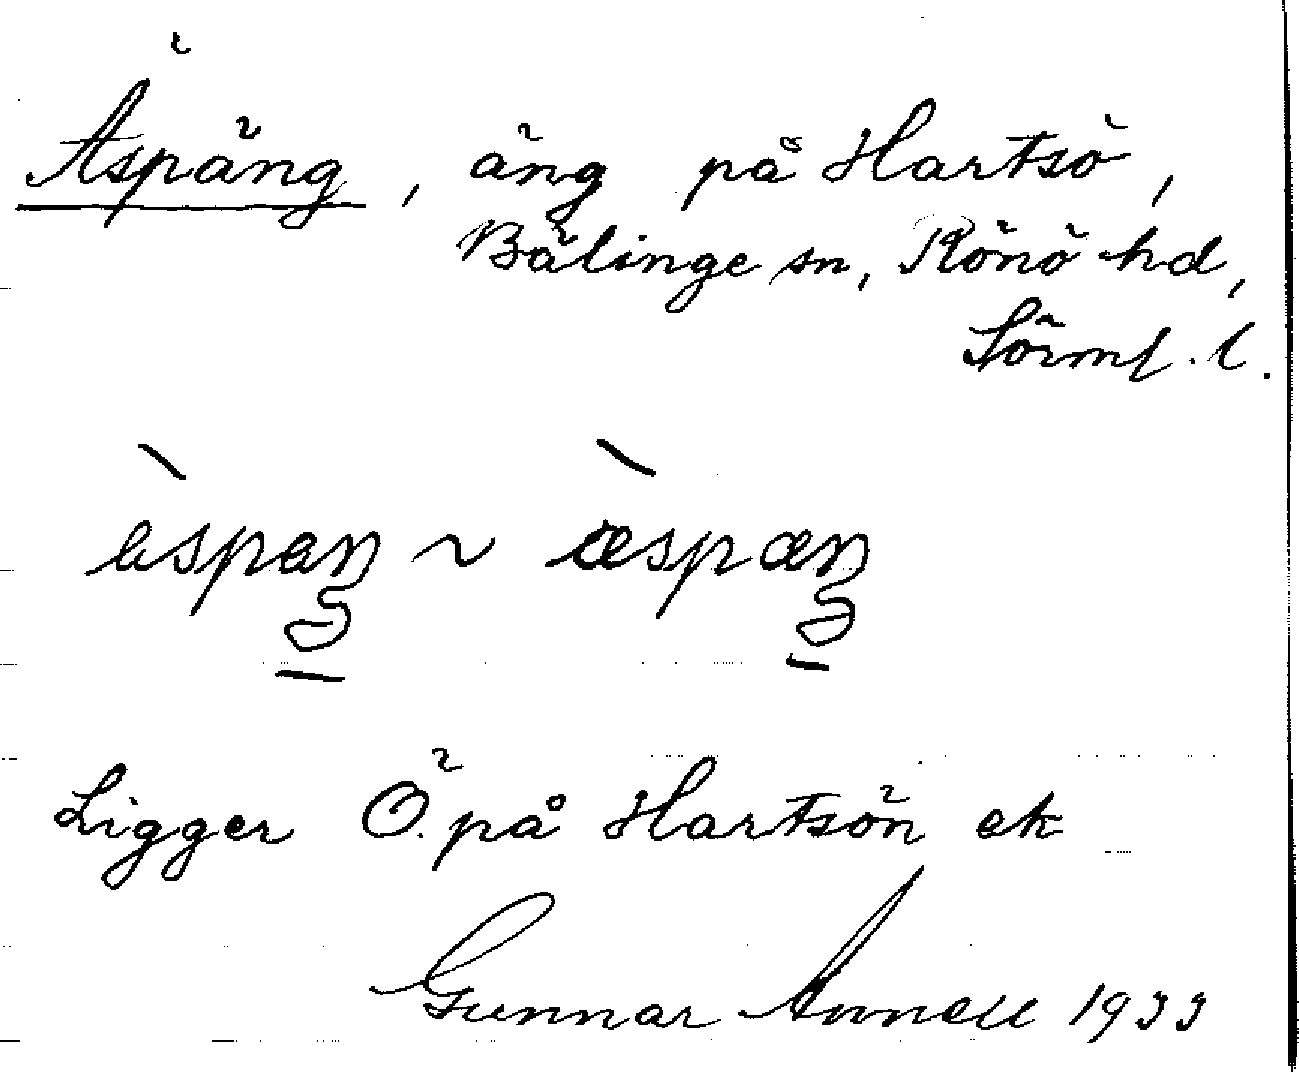 Äspäng, äng på Hartsö,
Bälinge sn, Rönö hd,
Sörml. l.
èspaŋ ~ æ̀spæŋ
Ligger Ö. på Hartsön ek
Gunnar Annell 1933